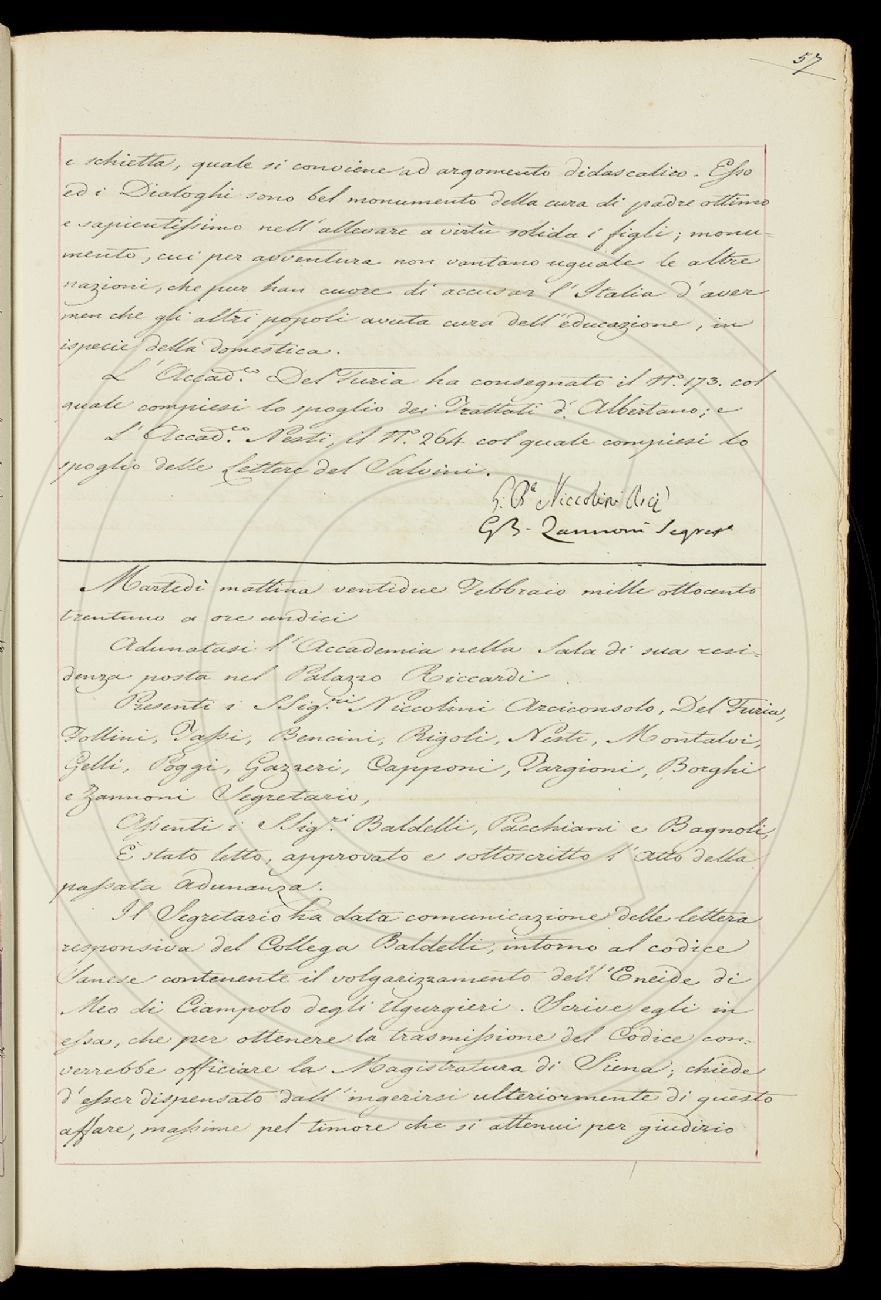 57
e schietta, quale si conviene ad argomento didascalico. Esso
ed i Dialoghi sono bel monumento della cura di padre ottimo
e sapientissimo nell'allevare a virtù solida i figli; monu-
mento, cui per avventura non vantano uguale le altre
nazioni, che pur han cuore di accusar l'Italia d'aver
men che gli altri popoli avuta cura dell'educazione, in
ispecie della domestica.
L'Accad.co Del Furia ha consegnato il N.o 173. col
quale compiesi lo spoglio dei Trattati d'Albertano; e
L'Accad.co Nesti, il N.o 264 col quale compiesi lo
spoglio delle Lettere del Salvini.
G. Ba Niccolini Arci
GB. Zannoni Segret.o
Martedì mattina ventidue Febbraio mille ottocento
trentuno a ore undici
Adunatasi l'Accademia nella Sala di sua resi-
denza posta nel Palazzo Riccardi
Presenti i SSig.ri Niccolini Arciconsolo, Del Furia,
Follini, Tassi, Bencini, Rigoli, Nesti, Montalvi,
Gelli, Poggi, Gazzeri, Capponi, Targioni, Borghi
e Zannoni Segretario,
Assenti i SSig.ri Baldelli, Pacchiani e Bagnoli,
È stato letto, approvato e sottoscritto l'Atto della
passata Adunanza.
Il Segretario ha data comunicazione della lettera
responsiva del Collega Baldelli, intorno al codice
Sanese contenente il volgarizzamento dell'Eneide di
Meo di Ciampolo degli Ugurgieri. Scrive egli in
essa, che per ottenere la trasmissione del Codice con-
verrebbe officiare la Magistratura di Siena; chiede
d'esser dispensato dall'ingerirsi ulteriormente di questo
affare, massime pel timore che si attenui per giudizio